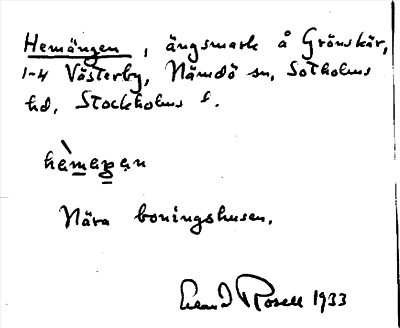 Hemängen, ängsmark å Grönskär,
1-4 Västerby, Nämdö sn, Sotholms
hd, Stockholms l.
hèmaŋen
Nära boningshusen.
Erland Rosell 1933